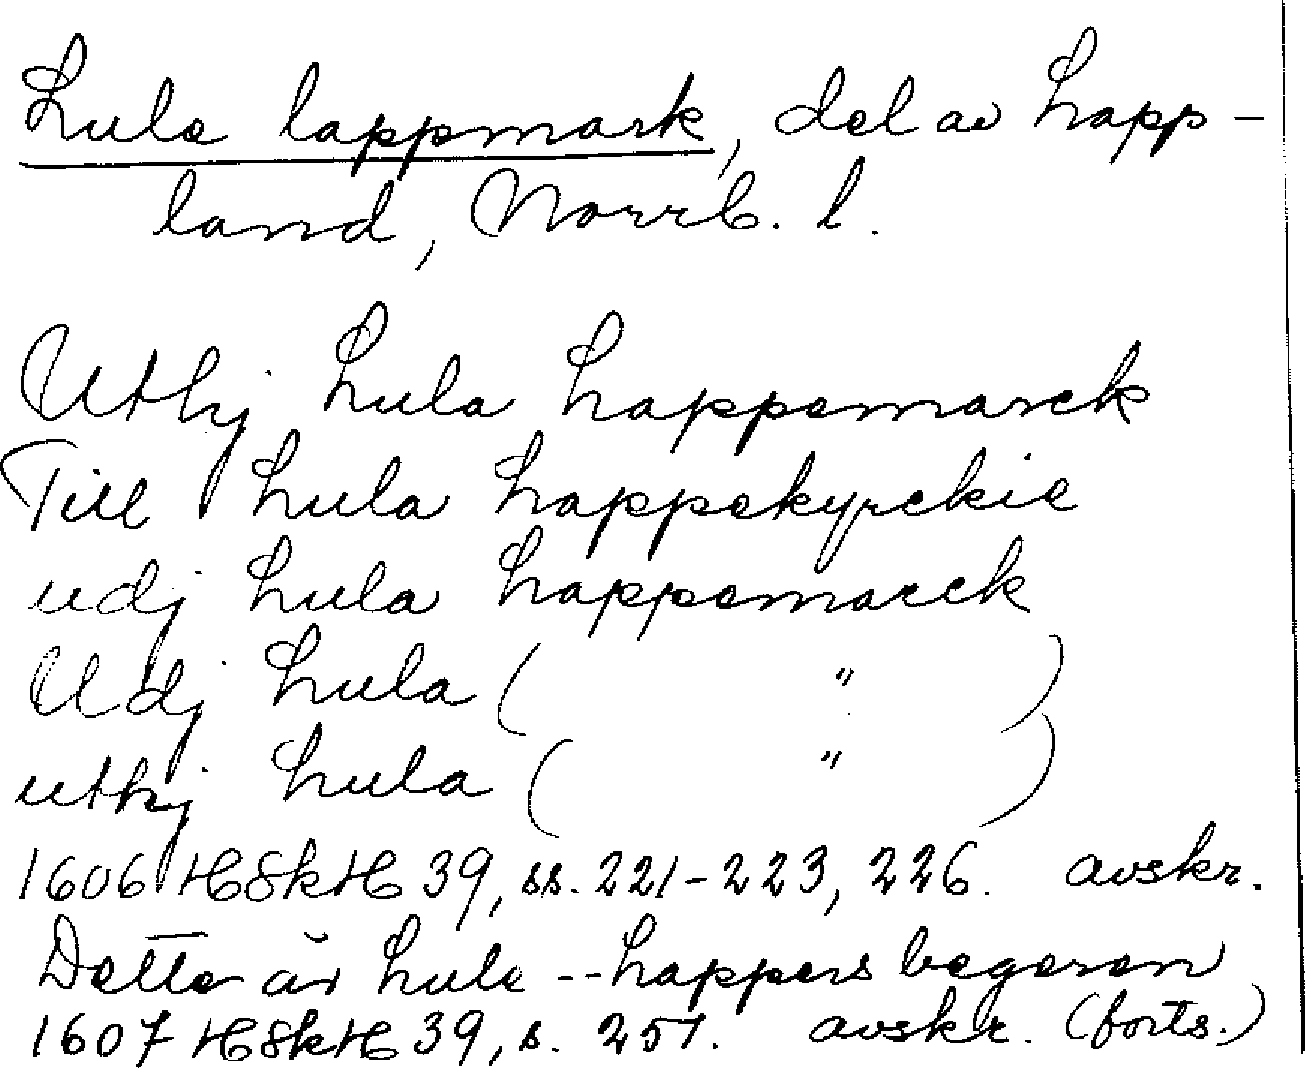 Lule lappmark, del av Lapp-
land, Norrb. l.
Uthj Lula Lappemarck
Till Lula Lappekyrckie
udj Lula Lappemarck
Udj Lula ( " )
uthj Lula ( " )
1606 HSkH 39, ss. 221-223, 226. avskr.
Dette är Lule -- Lappers begeren
1607 HSkH 39, s. 257. avskr. (forts.)